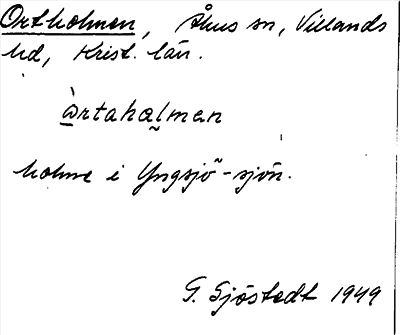 Ortholmen, Åhus sn, Villands
hd, Krist. län.
àrtahalman
holme i Yngsjö-sjön.
G. Sjöstedt 1949